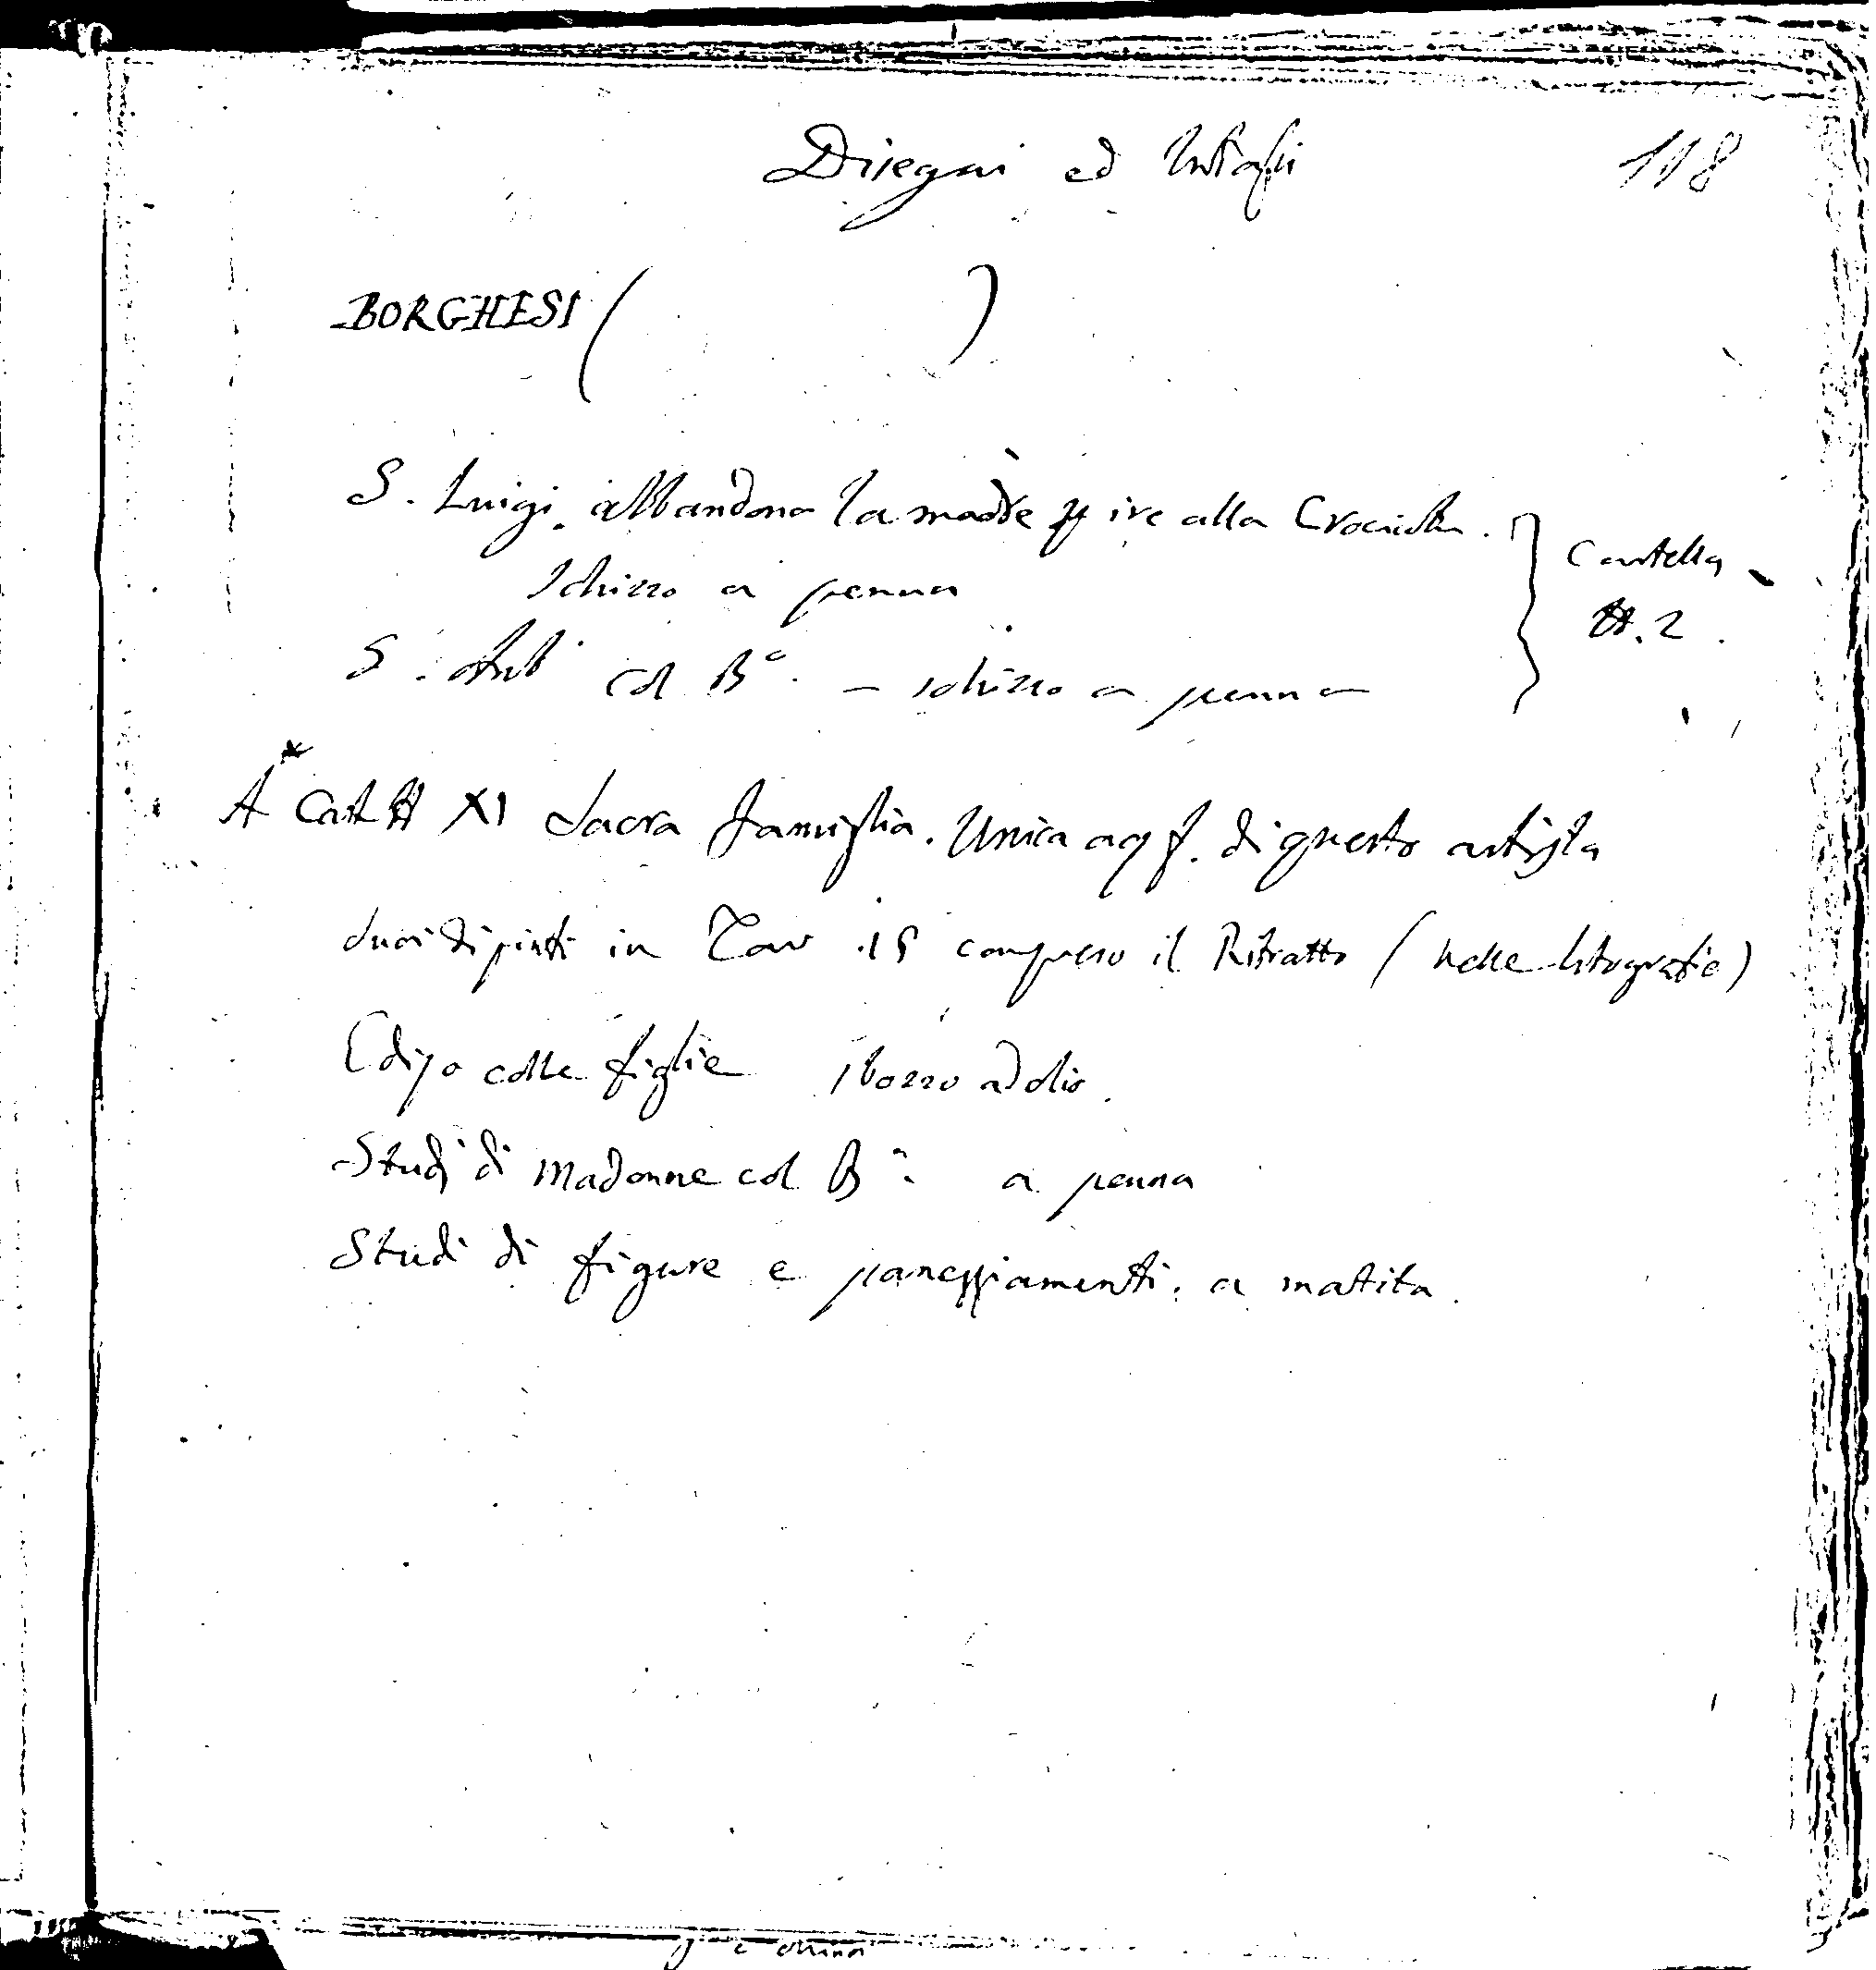 Disegni ed Intagli 118
BORGHESI ( )
S. Luigi abbandona la madre p ire alla Crociata.
Schizzo a penna
Cartella
H. 2.
S. Ant. col B° - schizzo a penna
A Cart H XI Sacra famiglia. Unica acq f. di questo artista
Suoi dipinti in Tav 15 compreso il Ritratto (nelle litografie)
Edipo colle figlie sbozzo ad olio.
Studj di Madonne col B° a penna
Studi di figure e paneggiamenti. a matita.